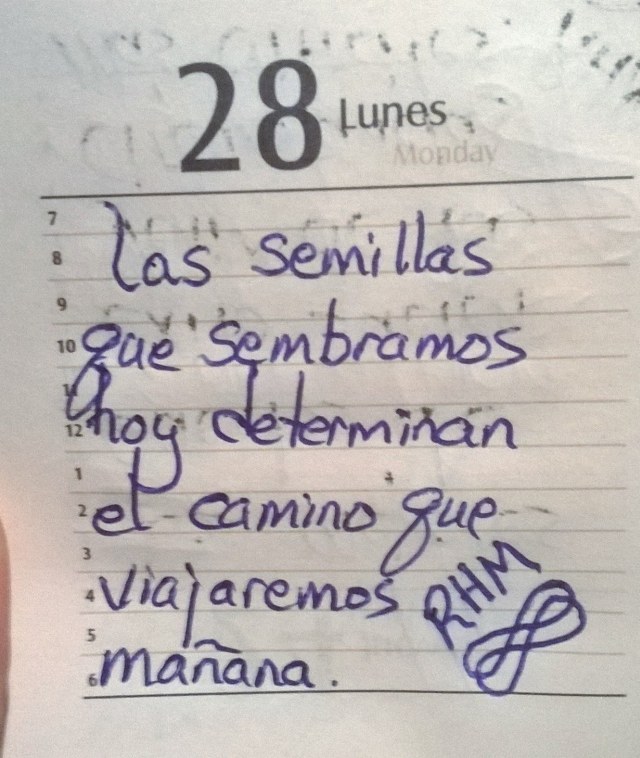 28 Lunes
Monday
7
8 Las semillas
9
10 que sembramos
11
12 hoy determinan
1
2 el camino que
3
4 viajaremos RHM
5
6 mañana.